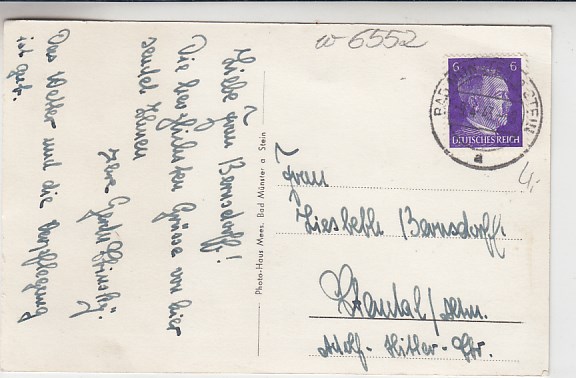 w 6552
Liebe Frau Bernsdorff!
Die herzlichsten Grüsse von hier
sendet Ihnen
Das Wetter und die Verpflegung
ist gut.
Photo-Haus Mees, Bad Münster a Stein
6 6
DEUTSCHES REICH
BAD MÜNSTER STEIN
a
4,-
Frau
Liesbeth Bernsdorff
Adolf-Hitler-Str.